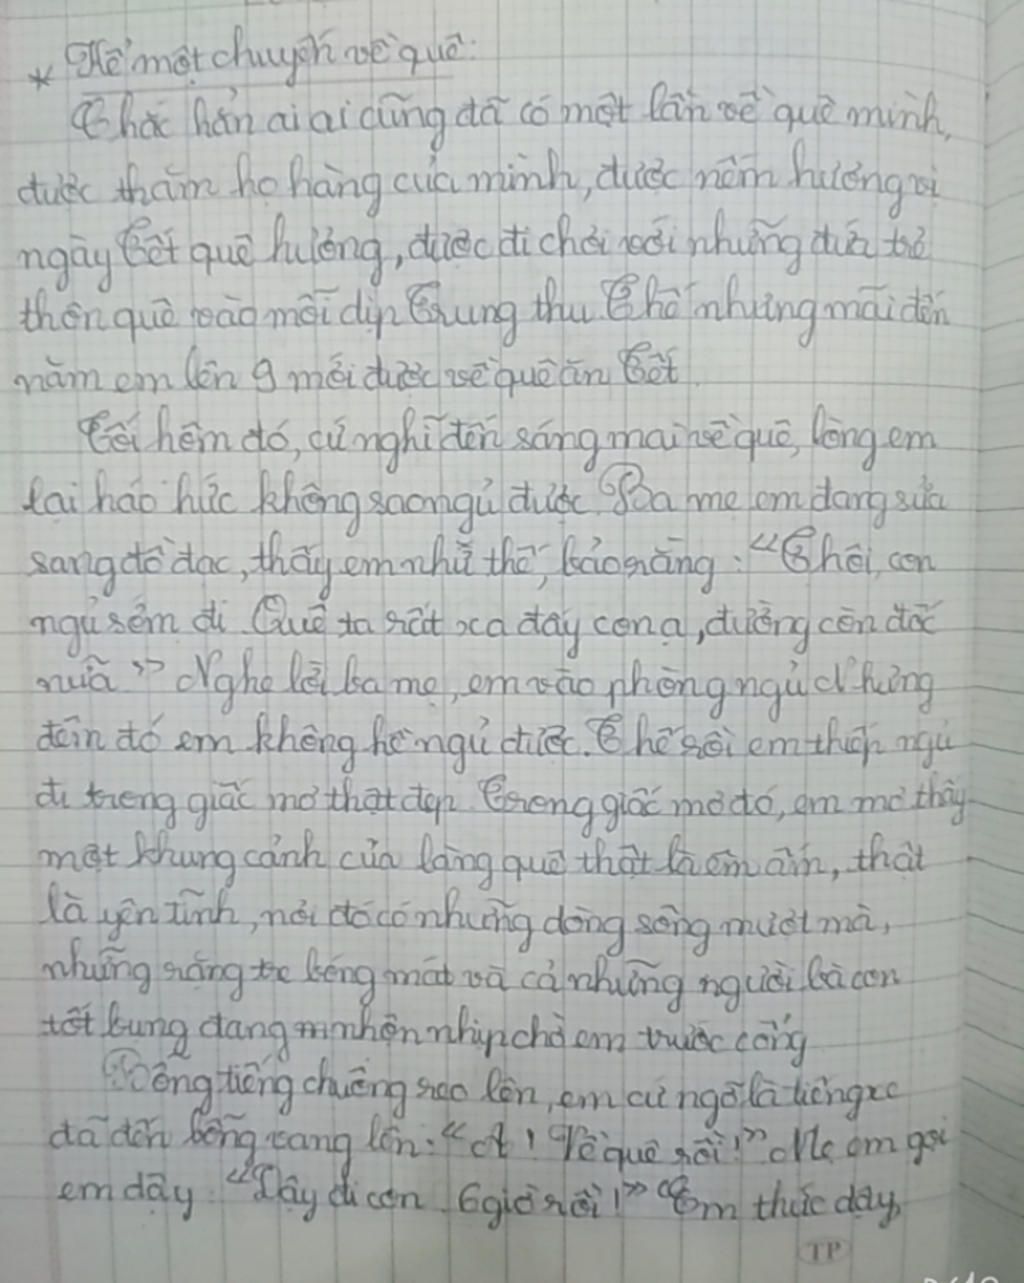 * Kể một chuyến về quê:
Chắc hẳn ai ai cũng đã có một lần về quê mình,
được thăm họ hàng của mình, được nếm hương vị
ngày Tết quê hương, được đi chơi với những đứa trẻ
thôn quê vào mỗi dịp Trung thu Thế nhưng mãi đến
năm em lên 9 mới được về quê ăn Tết.
Tối hôm đó, cứ nghĩ đến sáng mai về quê, lòng em
lại háo hức không sao ngủ được Ba mẹ em đang sửa
sang đồ đạc, thấy em như thế, bảo rằng: "Thôi, con
ngủ sớm đi Quê ta rất xa đấy con ạ, đường còn dốc
nữa" Nghe lời ba mẹ, em vào phòng ngủ Nhưng
đêm đó em không hề ngủ được. Thế rồi em thiếp ngủ
đi trong giấc mơ thật đẹp Trong giấc mơ đó, em mơ thấy
một khung cảnh của làng quê thật là êm ấm, thật
là yên tĩnh, nơi đó có những dòng sông mượt mà,
những rặng tre bóng mát và cả những người bà con
tốt bụng đang nhộn nhịp chờ em trước cổng
Bỗng tiếng chuông reo lên, em cứ ngỡ là tiếng xe
đã đến bỗng vang lên: "A! Về quê rồi!" Mẹ em gọi
em dậy: "Dậy đi con 6 giờ rồi!" Em thức dậy,
TP